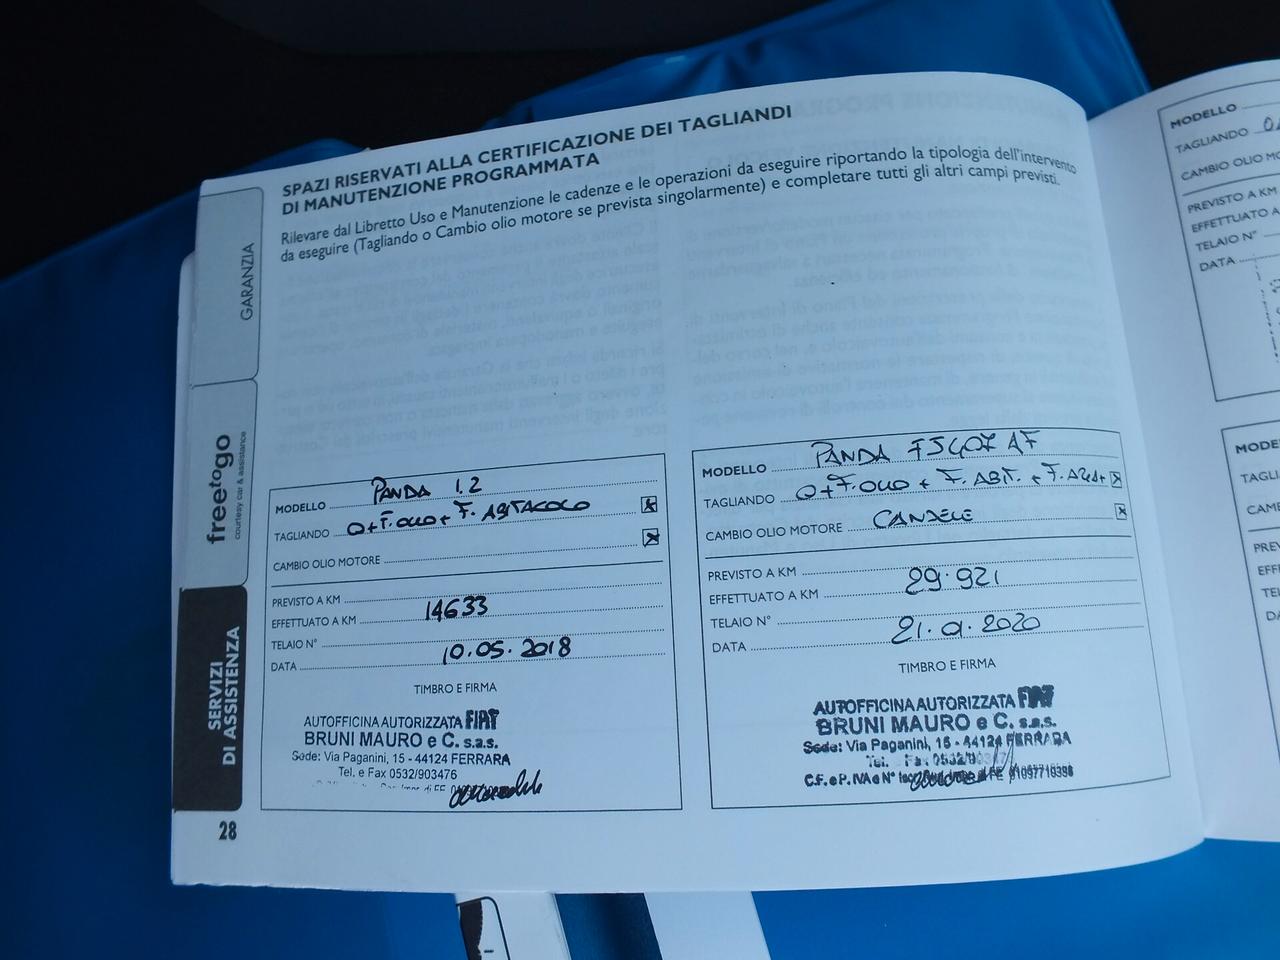 SPAZI RISERVATI ALLA CERTIFICAZIONE DEI TAGLIANDI
DI MANUTENZIONE PROGRAMMATA
Rilevare dal Libretto Uso e Manutenzione le cadenze e le operazioni da eseguire riportando la tipologia dell'intervento
da eseguire (Tagliando o Cambio olio motore se prevista singolarmente) e completare tutti gli altri campi previsti.
GARANZIA
freetogo
courtesy car & assistance
SERVIZI
DI ASSISTENZA
MODELLO PANDA 1.2
TAGLIANDO O+F.OLIO+F.ABITACOLO
CAMBIO OLIO MOTORE
PREVISTO A KM
EFFETTUATO A KM 14633
TELAIO N°
DATA 10.05.2018
TIMBRO E FIRMA
AUTOFFICINA AUTORIZZATA FIAT
BRUNI MAURO e C. s.a.s.
Sede: Via Paganini, 15 - 44124 FERRARA
Tel. e Fax 0532/903476
MODELLO PANDA FJ407AF
TAGLIANDO O+F.OLIO + F.ABIT. + F.ARIA+
CAMBIO OLIO MOTORE CANDELE
PREVISTO A KM
EFFETTUATO A KM 29.921
TELAIO N°
DATA 21.01.2020
TIMBRO E FIRMA
AUTOFFICINA AUTORIZZATA FIAT
BRUNI MAURO e C. s.a.s.
Sede: Via Paganini, 15 - 44124 FERRARA
Tel. Fax 0532/
C.F. e P. IVA e N°
28
MODELLO
TAGLIANDO
CAMBIO OLIO
PREVISTO A KM
EFFETTUATO A
TELAIO N°
DATA